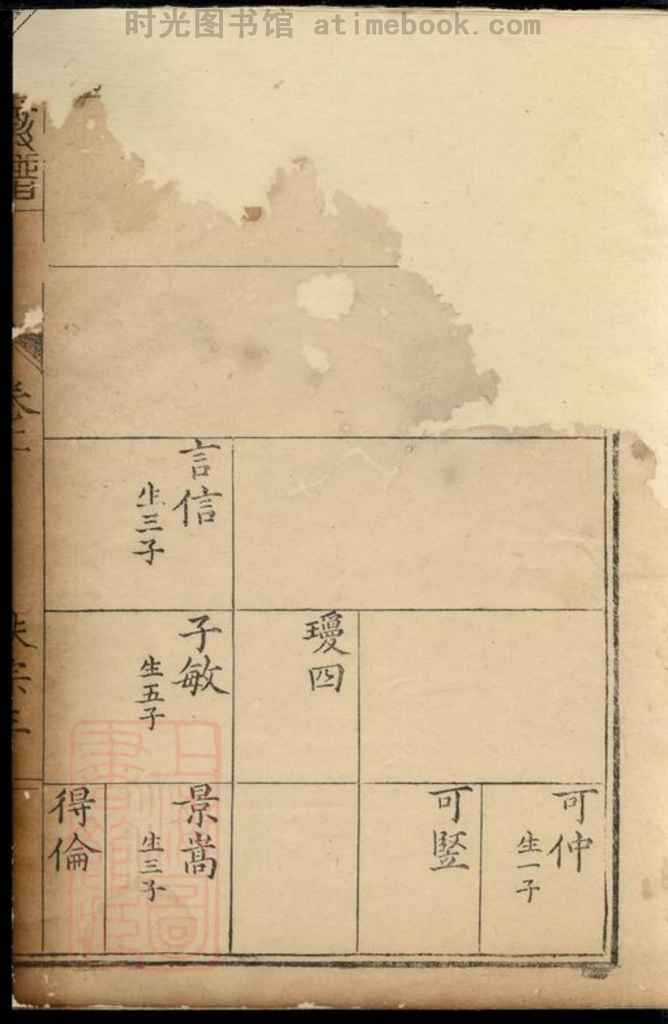 时光图书馆 atimebook.com
可仲
生一子
可豎
瓊四
言信
生三子
子敏
生五子
景嵩
生三子
得倫
譜